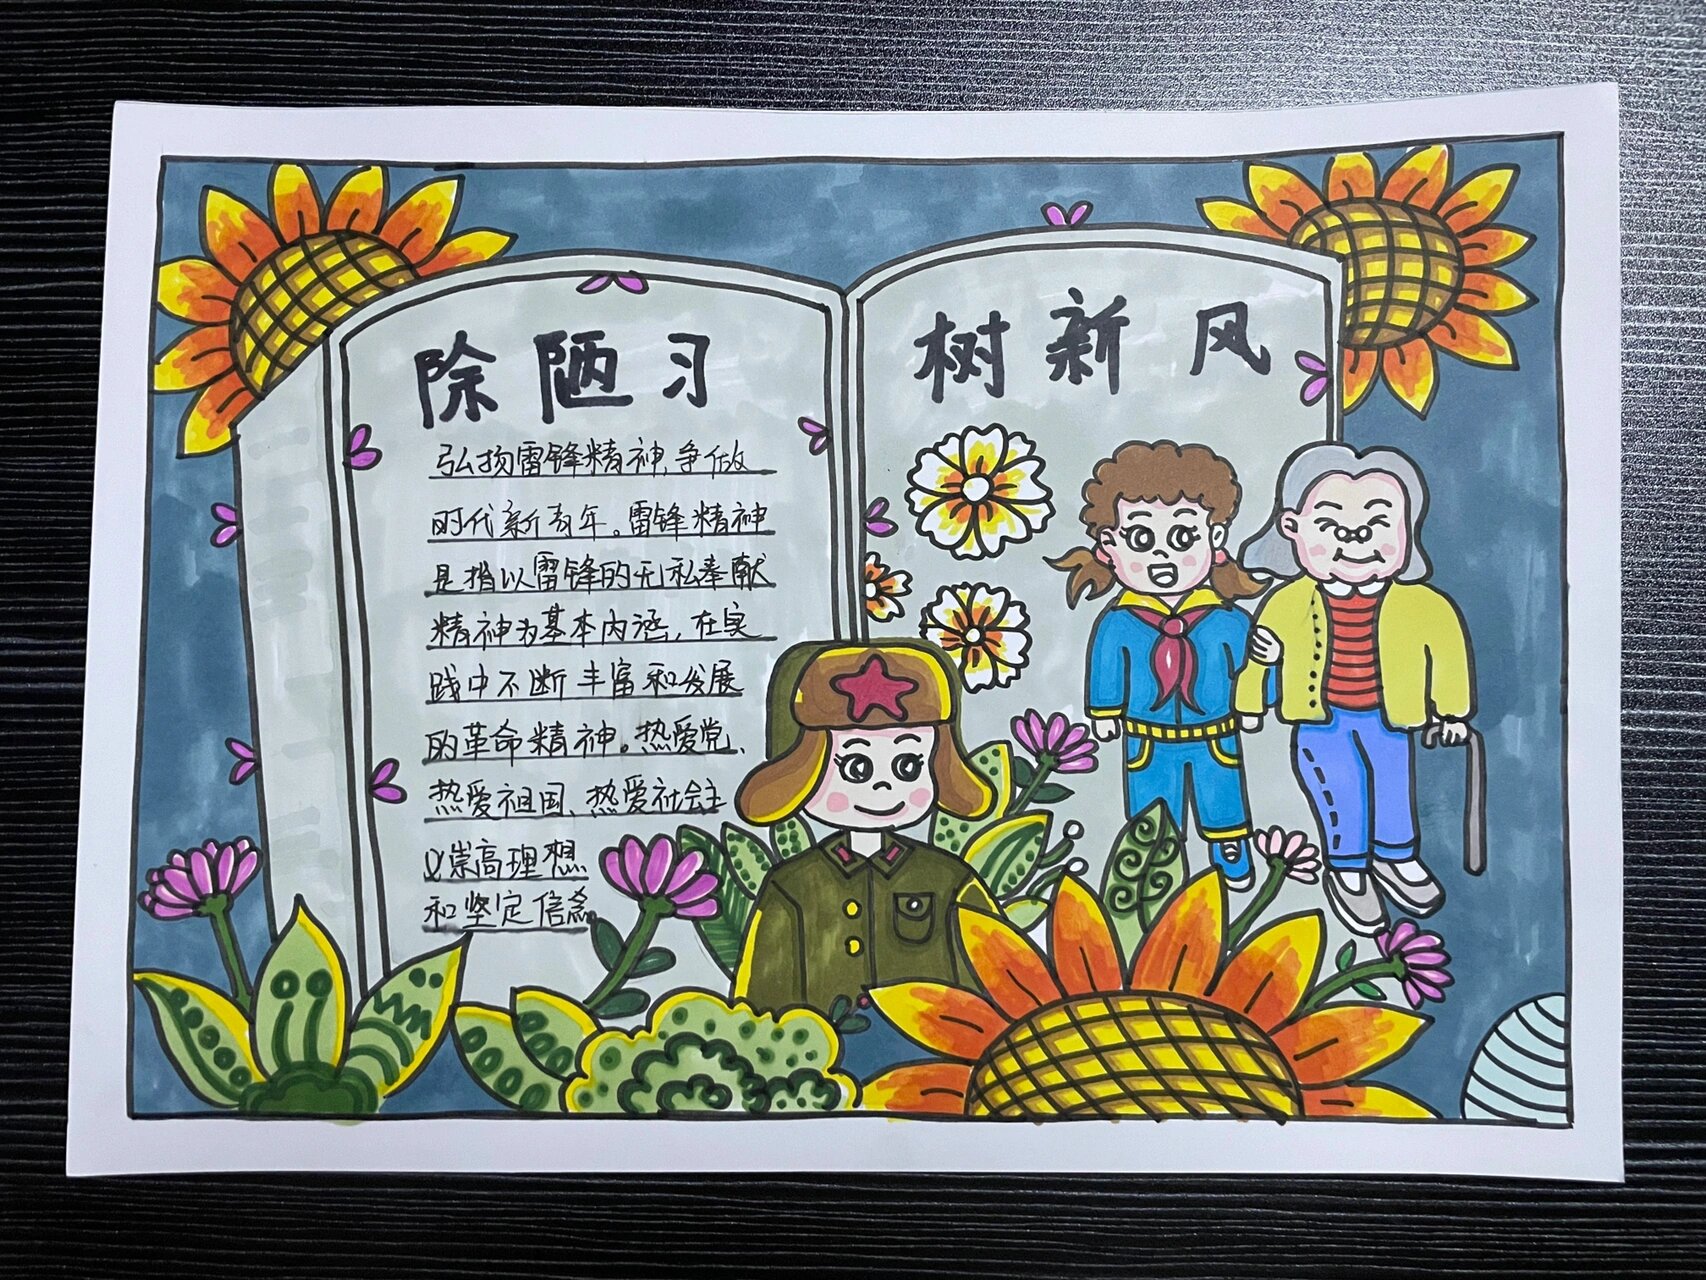 除陋习
树新风
弘扬雷锋精神,争做
时代新青年。雷锋精神
是指以雷锋的无私奉献
精神为基本内涵,在实
践中不断丰富和发展
的革命精神。热爱党、
热爱祖国、热爱社会主
义崇高理想
和坚定信念。